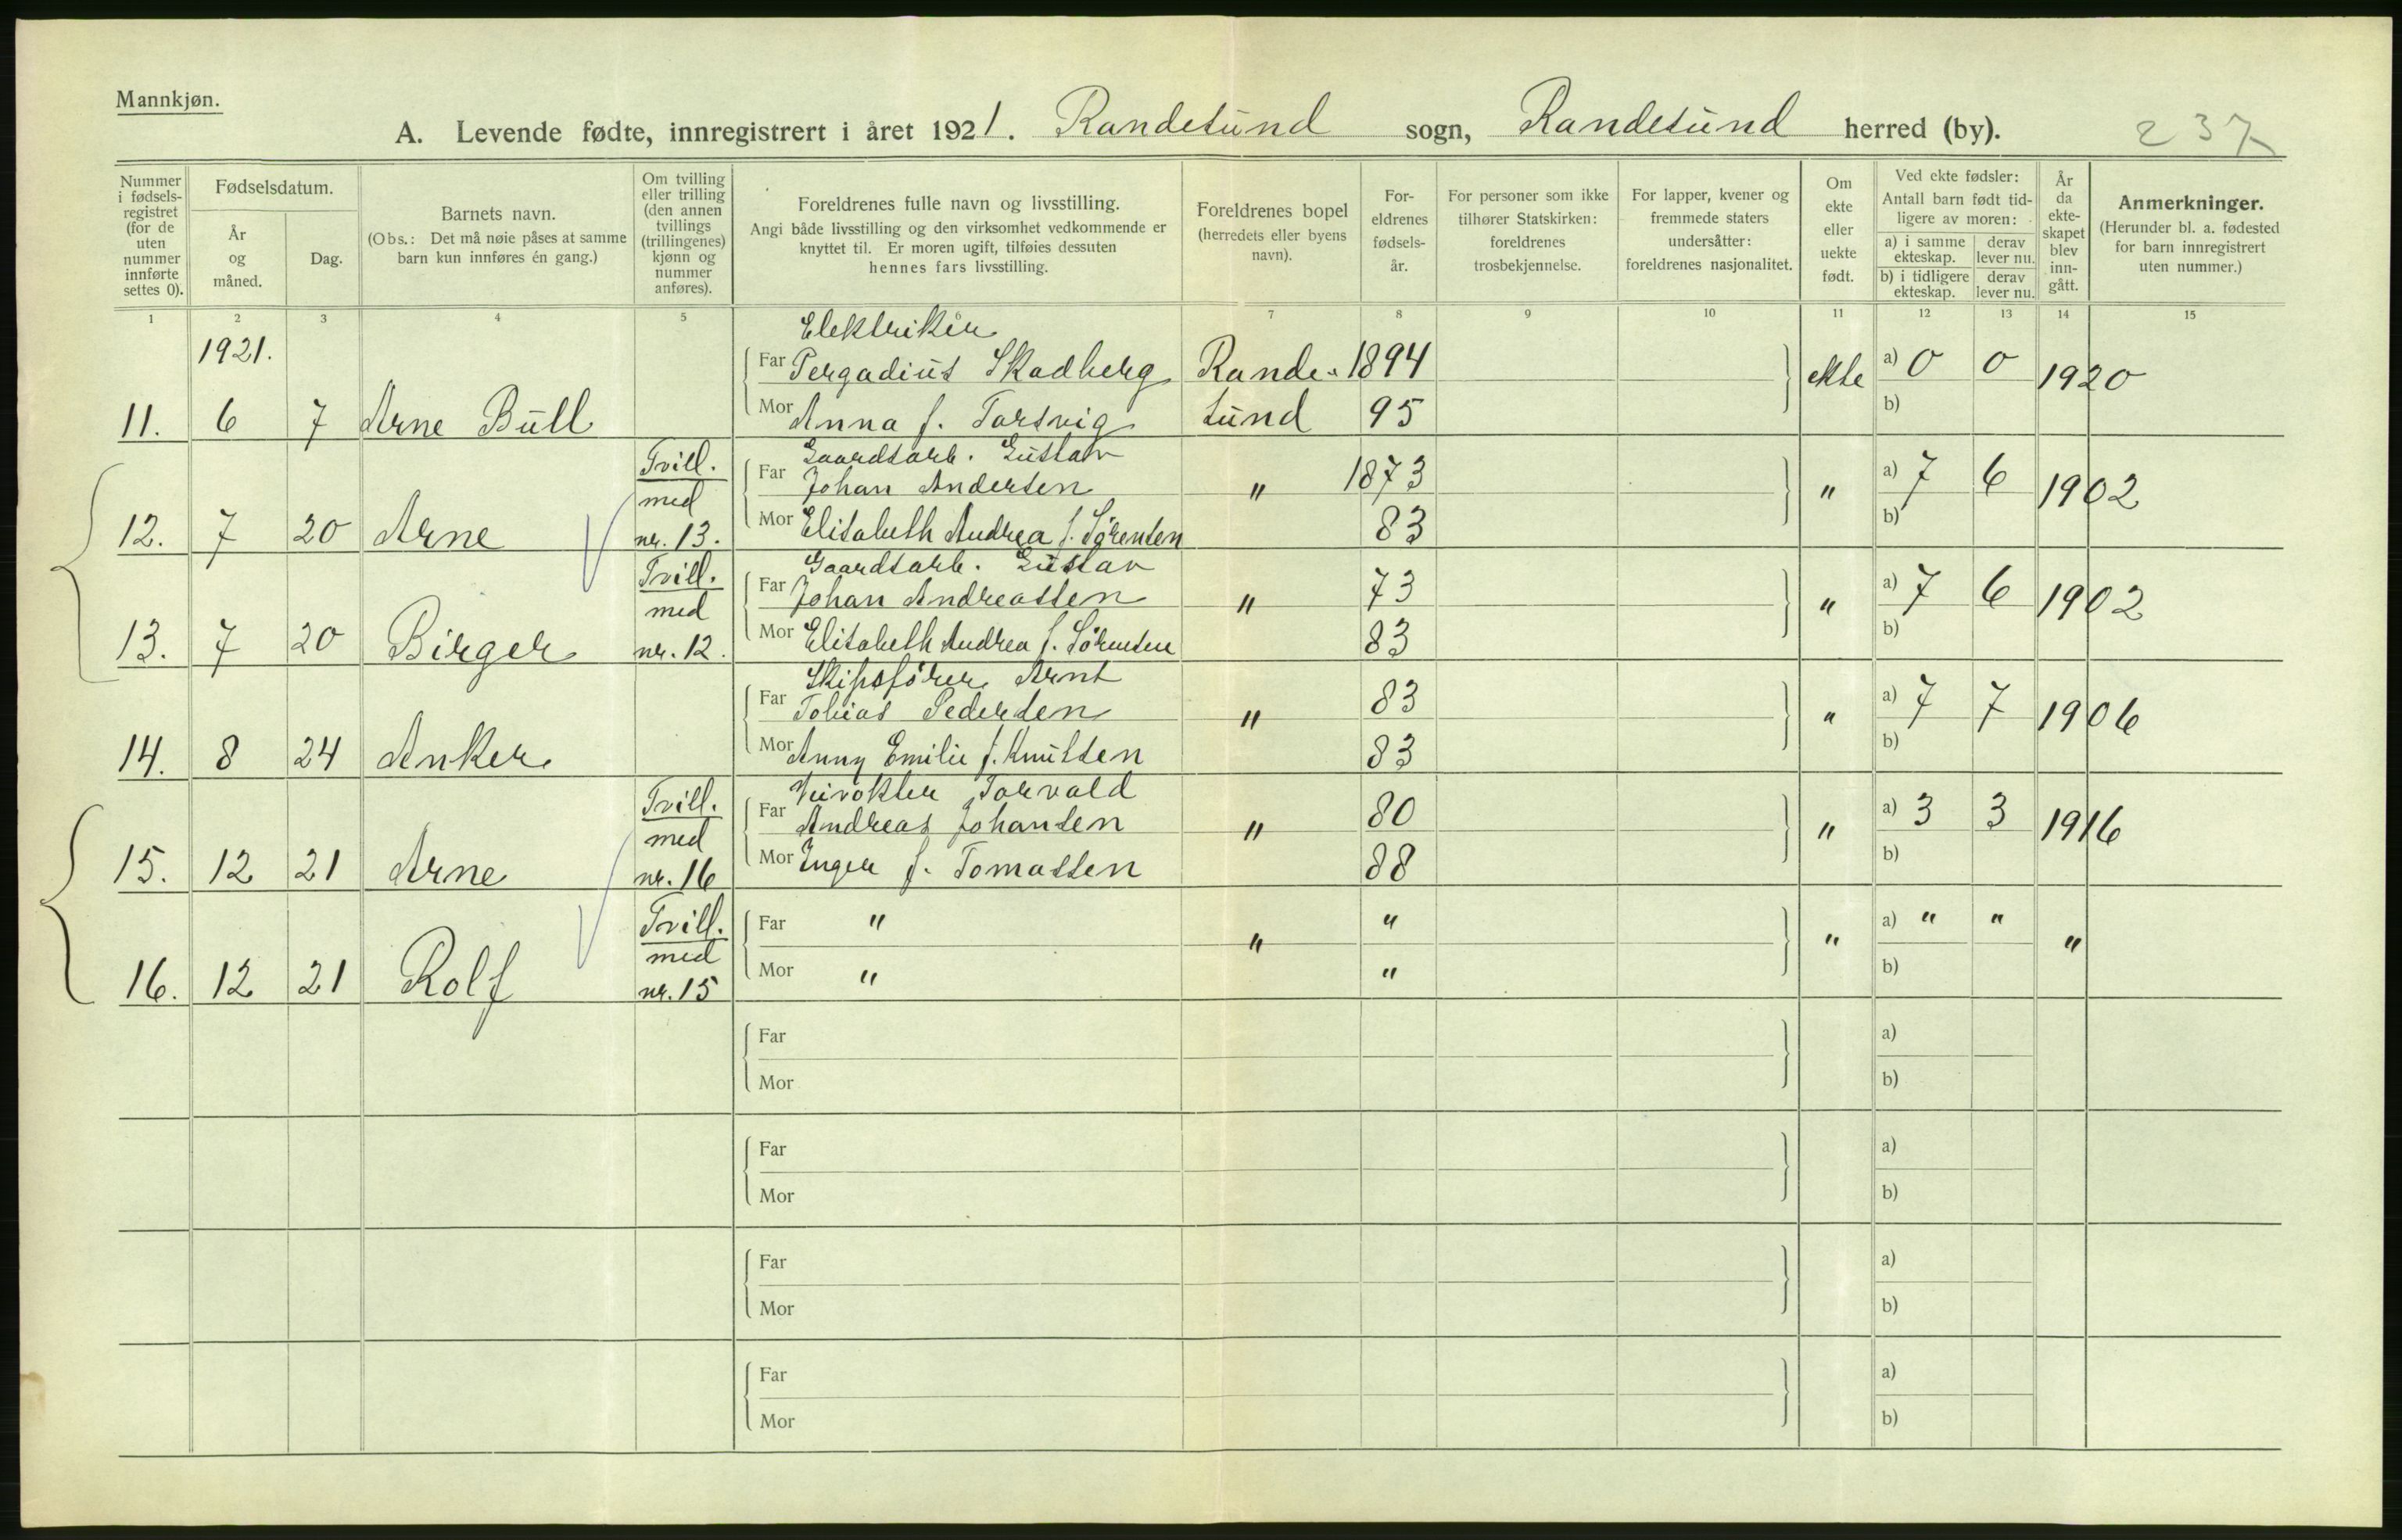 Mannkjøn.
A. Levende fødte, innregistrert i året 1921. Randesund sogn, Randesund herred (by). 237
Nummer i fødsels-registret (for de uten nummer innførte settes 0).
Fødselsdatum.
År og måned.
Dag.
Barnets navn.
(Obs.: Det må nøie påses at samme barn kun innføres én gang.)
Om tvilling eller trilling (den annen tvillings (trillingenes) kjønn og nummer anføres).
Foreldrenes fulle navn og livsstilling.
Angi både livsstilling og den virksomhet vedkommende er knyttet til. Er moren ugift, tilføies dessuten hennes fars livsstilling.
Foreldrenes bopel (herredets eller byens navn).
For-eldrenes fødsels-år.
For personer som ikke tilhører Statskirken: foreldrenes trosbekjennelse.
For lapper, kvener og fremmede staters undersåtter: foreldrenes nasjonalitet.
Om ekte eller uekte født.
Ved ekte fødsler:
Antall barn født tid-ligere av moren:
a) i samme ekteskap. derav lever nu.
b) i tidligere ekteskap. derav lever nu.
År da ekte-skapet blev inn-gått.
Anmerkninger.
(Herunder bl. a. fødested for barn innregistrert uten nummer.)
1 2 3 4 5 7 8 9 10 11 12 13 14 15
1921.
Elektriker
Far Pergadius Skadberg Rande- 1894 ekte a) 0 0 1920
11. 6 7 Arne Bull Mor Anna f. Torsvig sund 95 b)
Tvill. Gaardsarb. Gustav
med Far Johan Andersen " 1873 " a) 7 6 1902
12. 7 20 Arne nr. 13. Mor Elisabeth Andrea f. Sørensen 83 b)
Tvill. Gaardsarb. Gustav
med Far Johan Andreassen " 73 " a) 7 6 1902
13. 7 20 Birger nr. 12. Mor Elisabeth Andrea f. Sørensen 83 b)
Skipsfører Arnt
Far Tobias Pedersen " 83 " a) 7 7 1906
14. 8 24 Anker Mor Anny Emilie f. Knutsen 83 b)
Tvill. Veivokter Torvald
med Far Andreas Johansen " 80 " a) 3 3 1916
15. 12 21 Arne nr. 16 Mor Inger f. Tomassen 88 b)
Tvill. Far " " a) " "
med " " "
16. 12 21 Rolf nr. 15 Mor " " b)
Far a)
Mor b)
Far a)
Mor b)
Far a)
Mor b)
Far a)
Mor b)